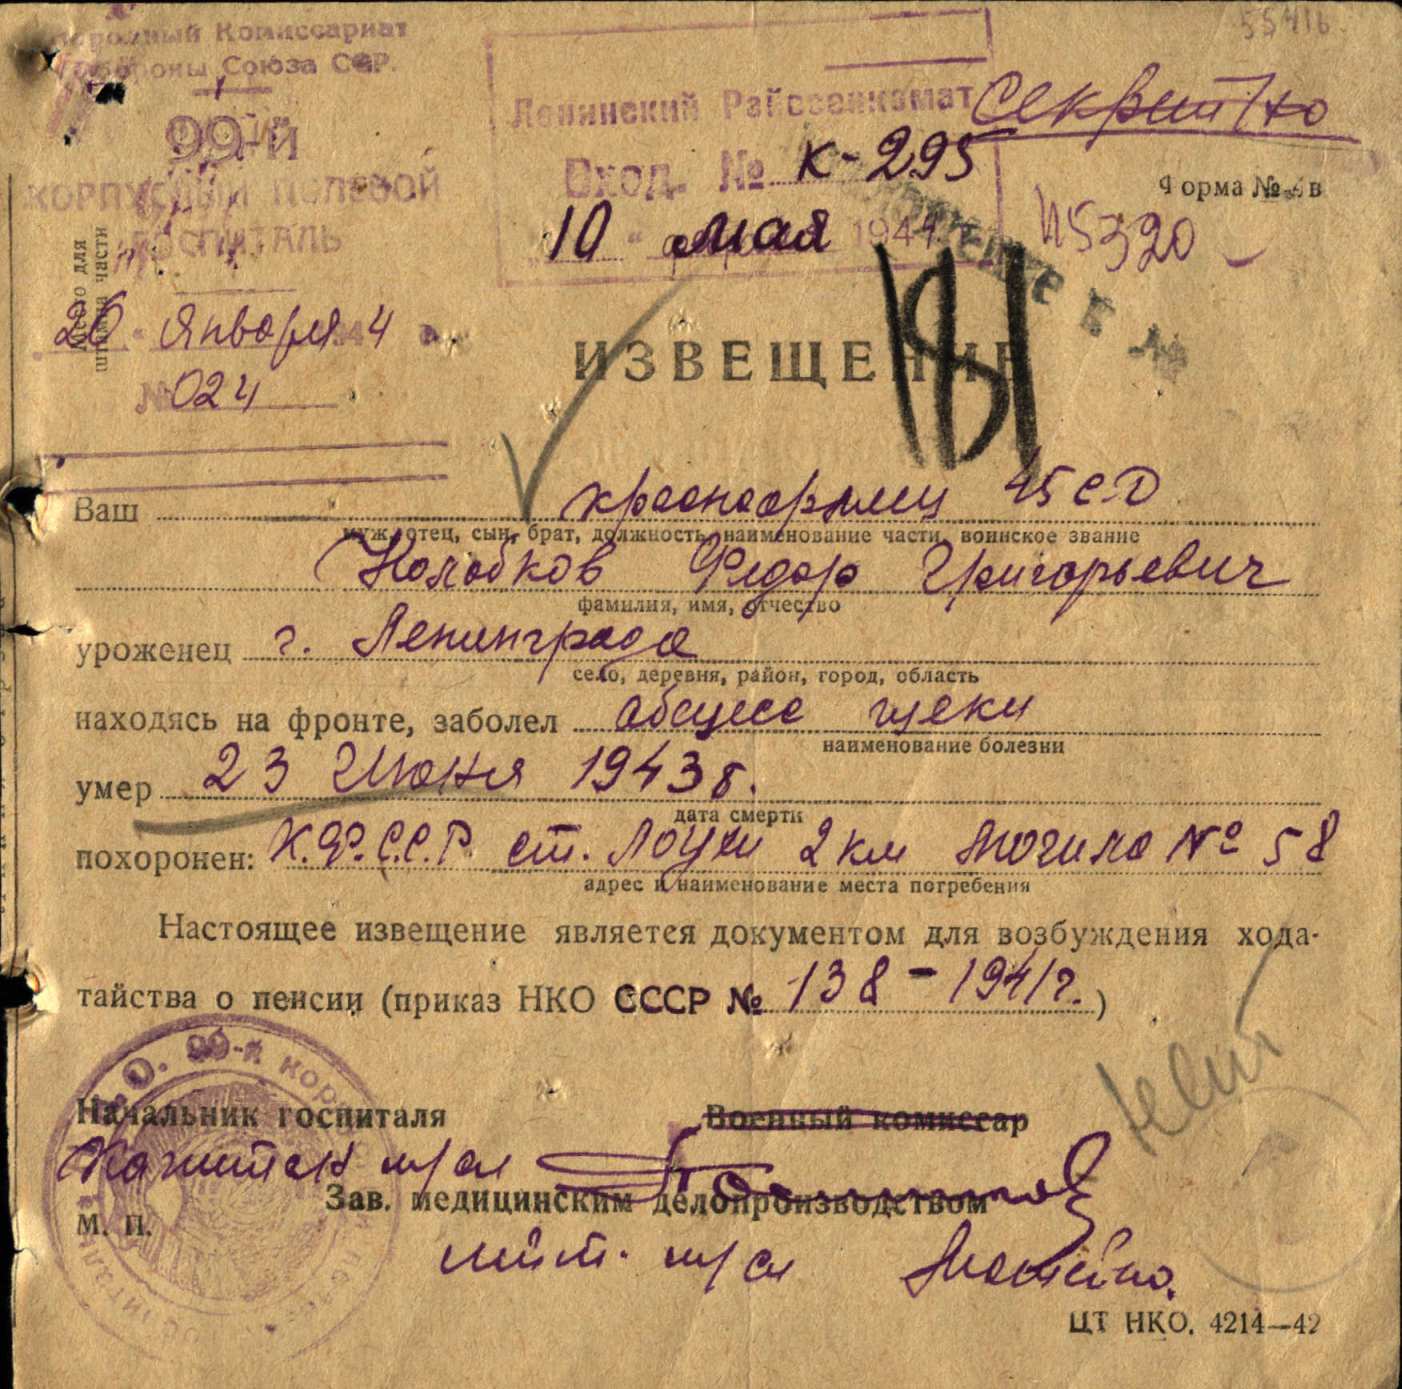 55416
Народный Комиссариат
Обороны Союза ССР.
99-й
КОРПУСНЫЙ ПОЛЕВОЙ
ГОСПИТАЛЬ
Место для
штампа части
26 " Января 1944 г.
№ 024
Ленинский Райвоенкомат
Вход. № К-295
10 " мая 1944
Секретно
Форма № 4в
И5320
181
ИЗВЕЩЕНИЕ
Ваш красноармеец 45 СД
муж, отец, сын, брат, должность, наименование части, воинское звание
Колобков Федор Григорьевич
фамилия, имя, отчество
уроженец г. Ленинграда
село, деревня, район, город, область
находясь на фронте, заболел абсцесс щеки
наименование болезни
умер 23 Июня 1943 г.
дата смерти
похоронен: К.Ф.С.С.Р. ст. Лоухи 2 км Могила № 58
адрес и наименование места погребения
Настоящее извещение является документом для возбуждения хода-
тайства о пенсии (приказ НКО СССР № 138-1941г.)
Начальник госпиталя
Военный комиссар
Капитан м/сл
Зав. медицинским делопроизводством
М. П.
лейт. м/сл
ЦТ НКО. 4214—42